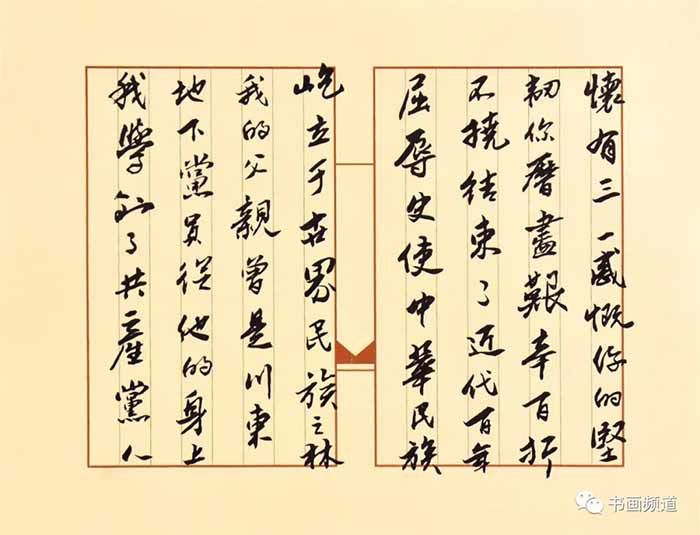 懷有三一感慨你的堅
韌你曆盡艱辛百折
不撓结束了近代百年
屈辱史使中華民族
屹立于世界民族之林
我的父親曾是川東
地下黨員從他的身上
我學到了共產黨人
书画频道